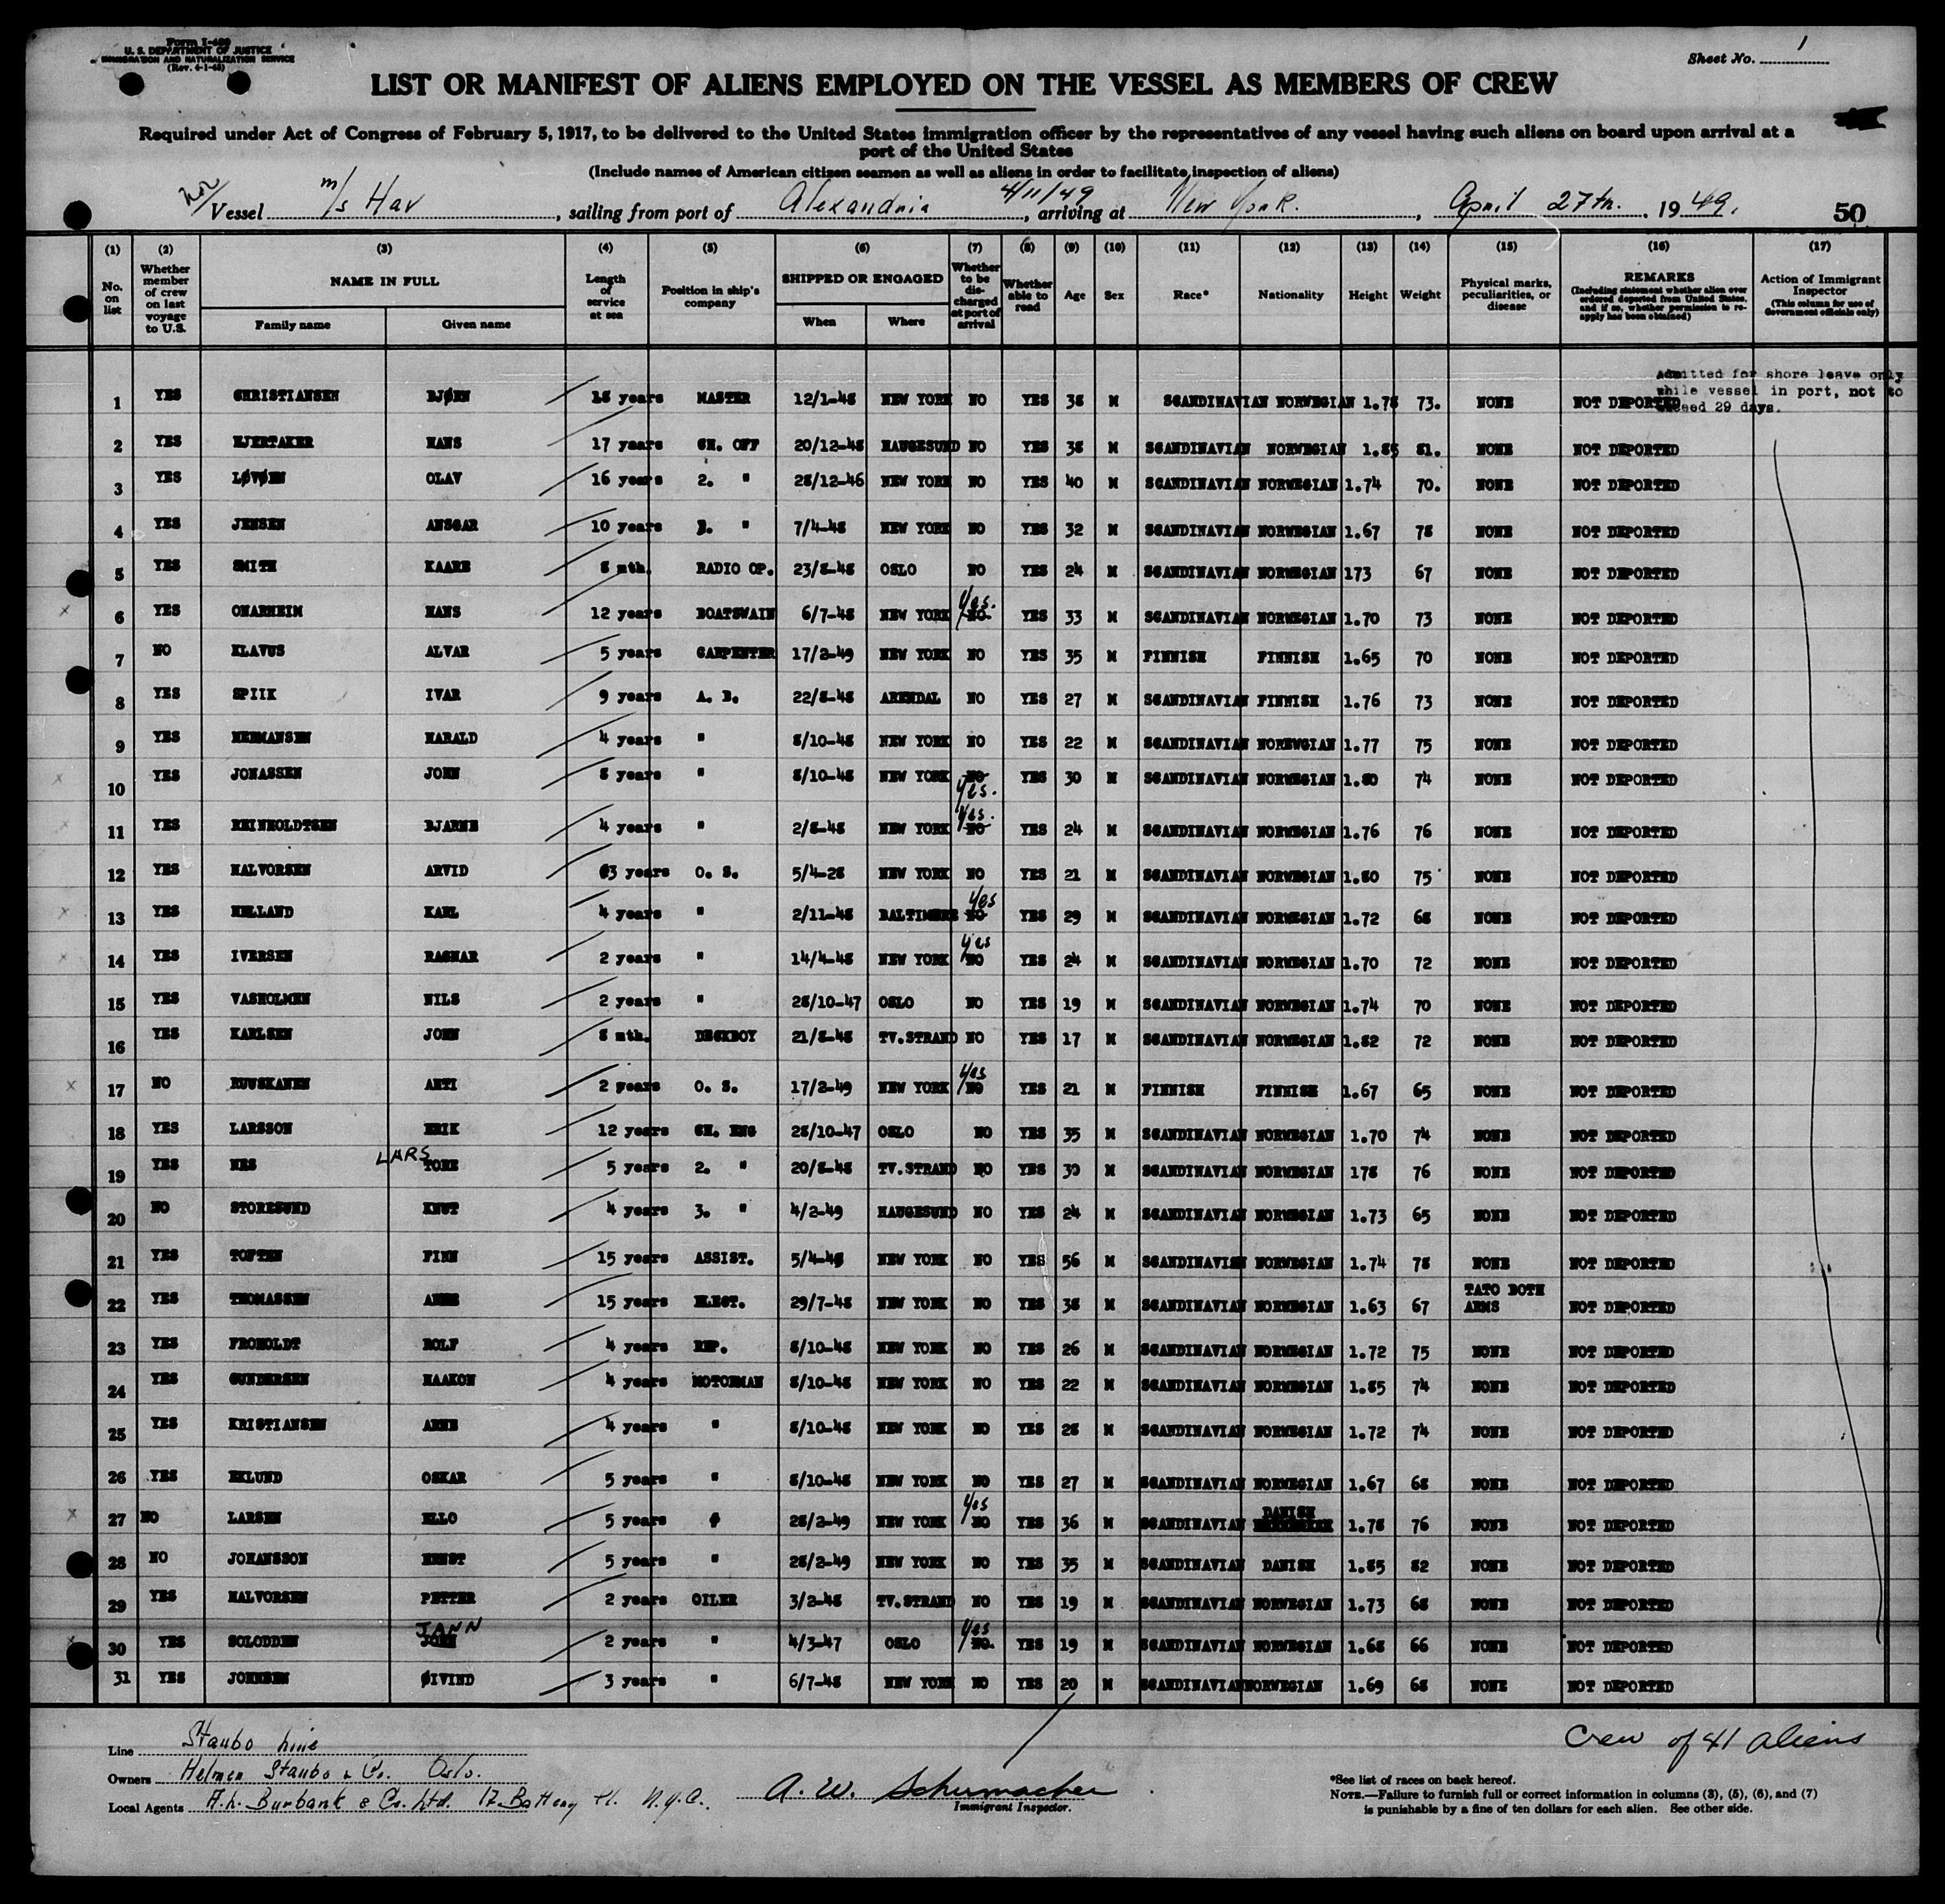 Form I-489
U. S. DEPARTMENT OF JUSTICE
IMMIGRATION AND NATURALIZATION SERVICE
(Rev. 4-1-45)
Sheet No. 1
LIST OR MANIFEST OF ALIENS EMPLOYED ON THE VESSEL AS MEMBERS OF CREW
Required under Act of Congress of February 5, 1917, to be delivered to the United States immigration officer by the representatives of any vessel having such aliens on board upon arrival at a
port of the United States
(Include names of American citizen seamen as well as aliens in order to facilitate inspection of aliens)
Nor/ Vessel M/s Hav, sailing from port of Alexandria 4/11/49, arriving at New York., April 27th. 1949. 50
(1) (2) (3) (4) (5) (6) (7) (8) (9) (10) (11) (12) (13) (14) (15) (16) (17)
No. on list Whether member of crew on last voyage to U.S. NAME IN FULL Family name Given name Length of service at sea Position in ship's company SHIPPED OR ENGAGED When Where Whether to be discharged at port of arrival Whether able to read Age Sex Race* Nationality Height Weight Physical marks, peculiarities, or disease REMARKS (Including statement whether alien ever ordered deported from United States, and if so, whether permission to reapply has been obtained) Action of Immigrant Inspector (This column for use of Government officials only)
Admitted for shore leave only
while vessel in port, not to
exceed 29 days.
1 YES CHRISTIANSEN BJØRN 18 years MASTER 12/1-48 NEW YORK NO YES 38 M SCANDINAVIAN NORWEGIAN 1.78 73. NONE NOT DEPORTED
2 YES HJERTAKER HANS 17 years CH. OFF 20/12-48 HAUGESUND NO YES 38 M SCANDINAVIAN NORWEGIAN 1.85 81. NONE NOT DEPORTED
3 YES LØVØEN OLAV 16 years 2. " 28/12-46 NEW YORK NO YES 40 M SCANDINAVIAN NORWEGIAN 1.74 70. NONE NOT DEPORTED
4 YES JENSEN ANSGAR 10 years 3. " 7/4-48 NEW YORK NO YES 32 M SCANDINAVIAN NORWEGIAN 1.67 78 NONE NOT DEPORTED
5 YES SMITH KAARE 8 mth. RADIO OP. 23/8-48 OSLO NO YES 24 M SCANDINAVIAN NORWEGIAN 173 67 NONE NOT DEPORTED
6 YES ONARHEIM HANS 12 years BOATSWAIN 6/7-48 NEW YORK Yes. NO. YES 33 M SCANDINAVIAN NORWEGIAN 1.70 73 NONE NOT DEPORTED
7 NO KLAVUS ALVAR 5 years CARPENTER 17/2-49 NEW YORK NO YES 35 M FINNISH FINNISH 1.65 70 NONE NOT DEPORTED
8 YES SPIIK IVAR 9 years A. B. 22/8-48 ARENDAL NO YES 27 M SCANDINAVIAN FINNISH 1.76 73 NONE NOT DEPORTED
9 YES HERMANSEN HARALD 4 years " 8/10-48 NEW YORK NO YES 22 M SCANDINAVIAN NOREWGIAN 1.77 75 NONE NOT DEPORTED
10 YES JONASSEN JOHN 8 years " 8/10-48 NEW YORK NO Yes. YES 30 M SCANDINAVIAN NORWEGIAN 1.80 74 NONE NOT DEPORTED
11 YES REINHOLDTSEN BJARNE 4 years " 2/8-48 NEW YORK Yes. NO YES 24 M SCANDINAVIAN NORWEGIAN 1.76 76 NONE NOT DEPORTED
12 YES HALVORSEN ARVID 3 years O. S. 5/4-28 NEW YORK NO YES 21 M SCANDINAVIAN NORWEGIAN 1.80 75 NONE NOT DEPORTED
13 YES HELLAND KARL 4 years " 2/11-48 BALTIMORE Yes NO YES 29 M SCANDINAVIAN NORWEGIAN 1.72 68 NONE NOT DEPORTED
14 YES IVERSEN RAGNAR 2 years " 14/4-48 NEW YORK Yes NO YES 24 M SCANDINAVIAN NORWEGIAN 1.70 72 NONE NOT DEPORTED
15 YES VASHOLMEN NILS 2 years " 28/10-47 OSLO NO YES 19 M SCANDINAVIAN NORWEGIAN 1.74 70 NONE NOT DEPORTED
16 YES KARLSEN JOHN 8 mth. DECKBOY 21/8-48 TV.STRAND NO YES 17 M SCANDINAVIAN NORWEGIAN 1.82 72 NONE NOT DEPORTED
17 NO RUUSKANEN ANTI 2 years O. S. 17/2-49 NEW YORK Yes NO YES 21 M FINNISH FINNISH 1.67 65 NONE NOT DEPORTED
18 YES LARSSON ERIK 12 years CH. ENG 28/10-47 OSLO NO YES 35 M SCANDINAVIAN NORWEGIAN 1.70 74 NONE NOT DEPORTED
19 YES NES LARS TORE 5 years 2. " 20/8-48 TV.STRAND NO YES 30 M SCANDINAVIAN NORWEGIAN 178 76 NONE NOT DEPORTED
20 NO STORESUND KNUT 4 years 3. " 4/2-49 HAUGESUND NO YES 24 M SCANDINAVIAN NORWEGIAN 1.73 65 NONE NOT DEPORTED
21 YES TOFTEN FINN 15 years ASSIST. 5/4-48 NEW YORK NO YES 56 M SCANDINAVIEN NORWEGIAN 1.74 78 NONE NOT DEPORTED
22 YES THOMASSEN ARNE 15 years ELECT. 29/7-48 NEW YORK NO YES 38 M SCANDINAVIAN NORWEGIAN 1.63 67 TATO BOTH ARMS NOT DEPORTED
23 YES FROHOLDT ROLF 4 years REP. 8/10-48 NEW YORK NO YES 26 M SCANDINAVIAN NORWEGIAN 1.72 75 NONE NOT DEPORTED
24 YES GUNDERSEN HAAKON 4 years MOTORMAN 8/10-48 NEW YORK NO YES 22 M SCANDINAVIAN NORWEGIAN 1.85 74 NONE NOT DEPORTED
25 YES KRISTIANSEN ARNE 4 years " 8/10-48 NEW YORK NO YES 28 M SCANDINAVIAN NORWEGIAN 1.72 74 NONE NOT DEPORTED
26 YES EKLUND OSKAR 5 years " 8/10-48 NEW YORK NO YES 27 M SCANDINAVIAN NORWEGIAN 1.67 68 NONE NOT DEPORTED
27 NO LARSEN ELLO 5 years " 28/2-49 NEW YORK Yes NO YES 36 M SCANDINAVIAN DANISH 1.78 76 NONE NOT DEPORTED
28 NO JOHANSSON ERNST 5 years " 28/2-49 NEW YORK NO YES 35 M SCANDINAVIAN DANISH 1.85 82 NONE NOT DEPORTED
29 YES HALVORSEN PETTER 2 years OILER 3/2-48 TV.STRAND NO YES 19 M SCANDINAVIAN NORWEGIAN 1.73 68 NONE NOT DEPORTED
30 YES SOLODDEN JANN JOHN 2 years " 4/3-47 OSLO Yes NO. YES 19 M SCANDINAVIAN NORWEGIAN 1.68 66 NONE NOT DEPORTED
31 YES JOHNSEN ØIVIND 3 years " 6/7-48 NEW YORK NO YES 20 M SCANDINAVIAN NORWEGIAN 1.69 68 NONE NOT DEPORTED
Line Staubo Line
Crew of 41 aliens
Owners Helmer Staubo & Co. Oslo.
Local Agents A.L. Burbank & Co. Ltd. 17 Battery Pl. N.Y.C.
A. W. Schumacher
Immigrant Inspector.
*See list of races on back hereof.
NOTE.—Failure to furnish full or correct information in columns (3), (5), (6), and (7)
is punishable by a fine of ten dollars for each alien. See other side.